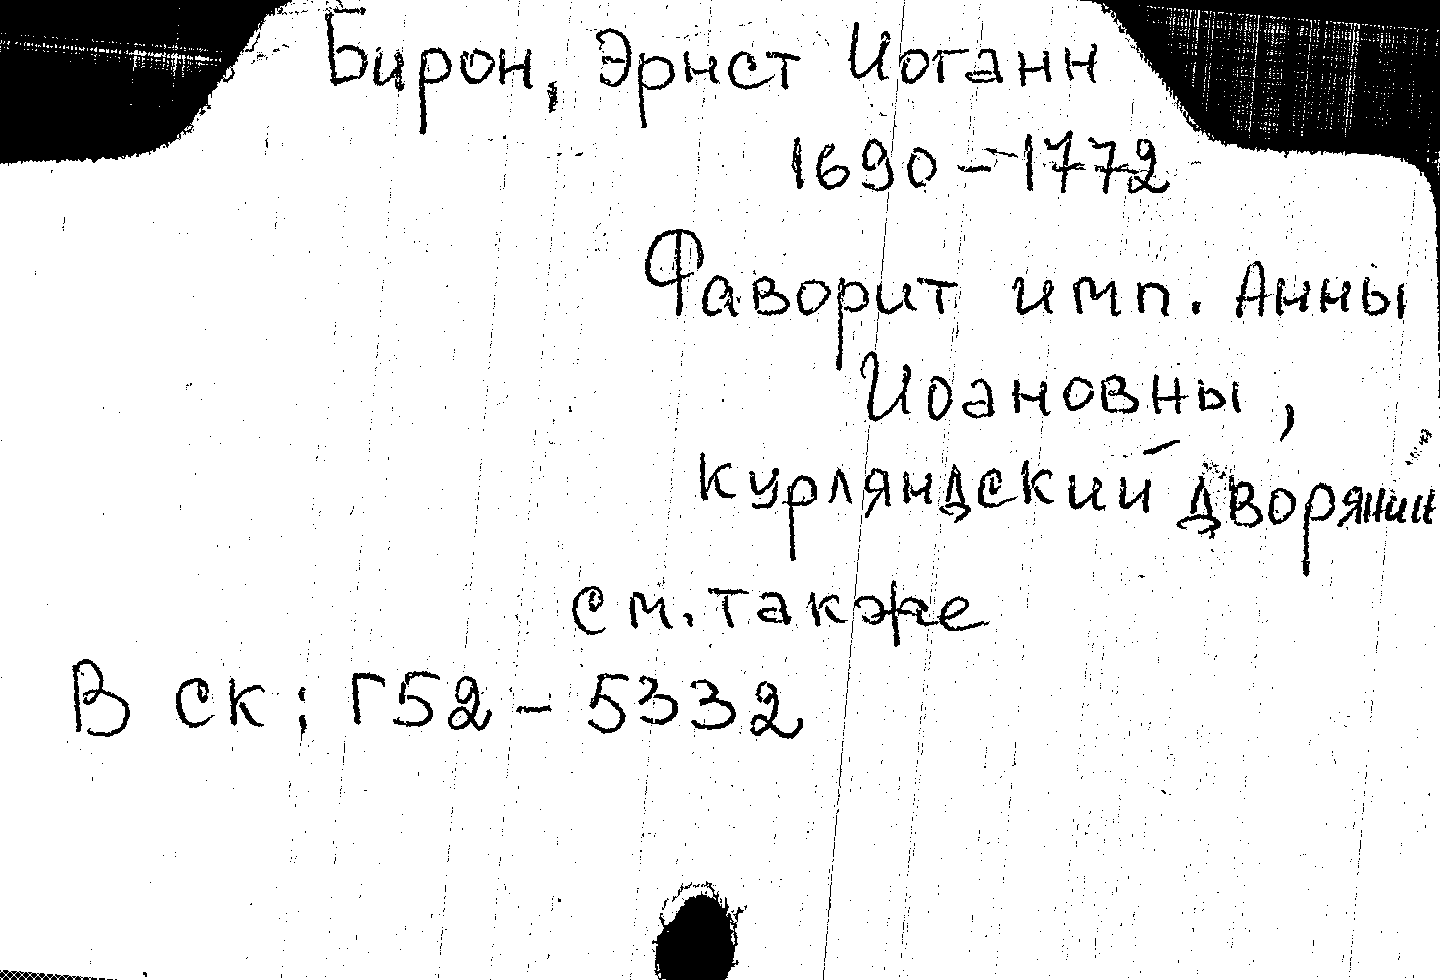 Бирон, Эрнст Иоганн
1690-1772
Фаворит имп. Анны
Иоановны,
курляндский дворянин
см. также
В ск: Г52-5332